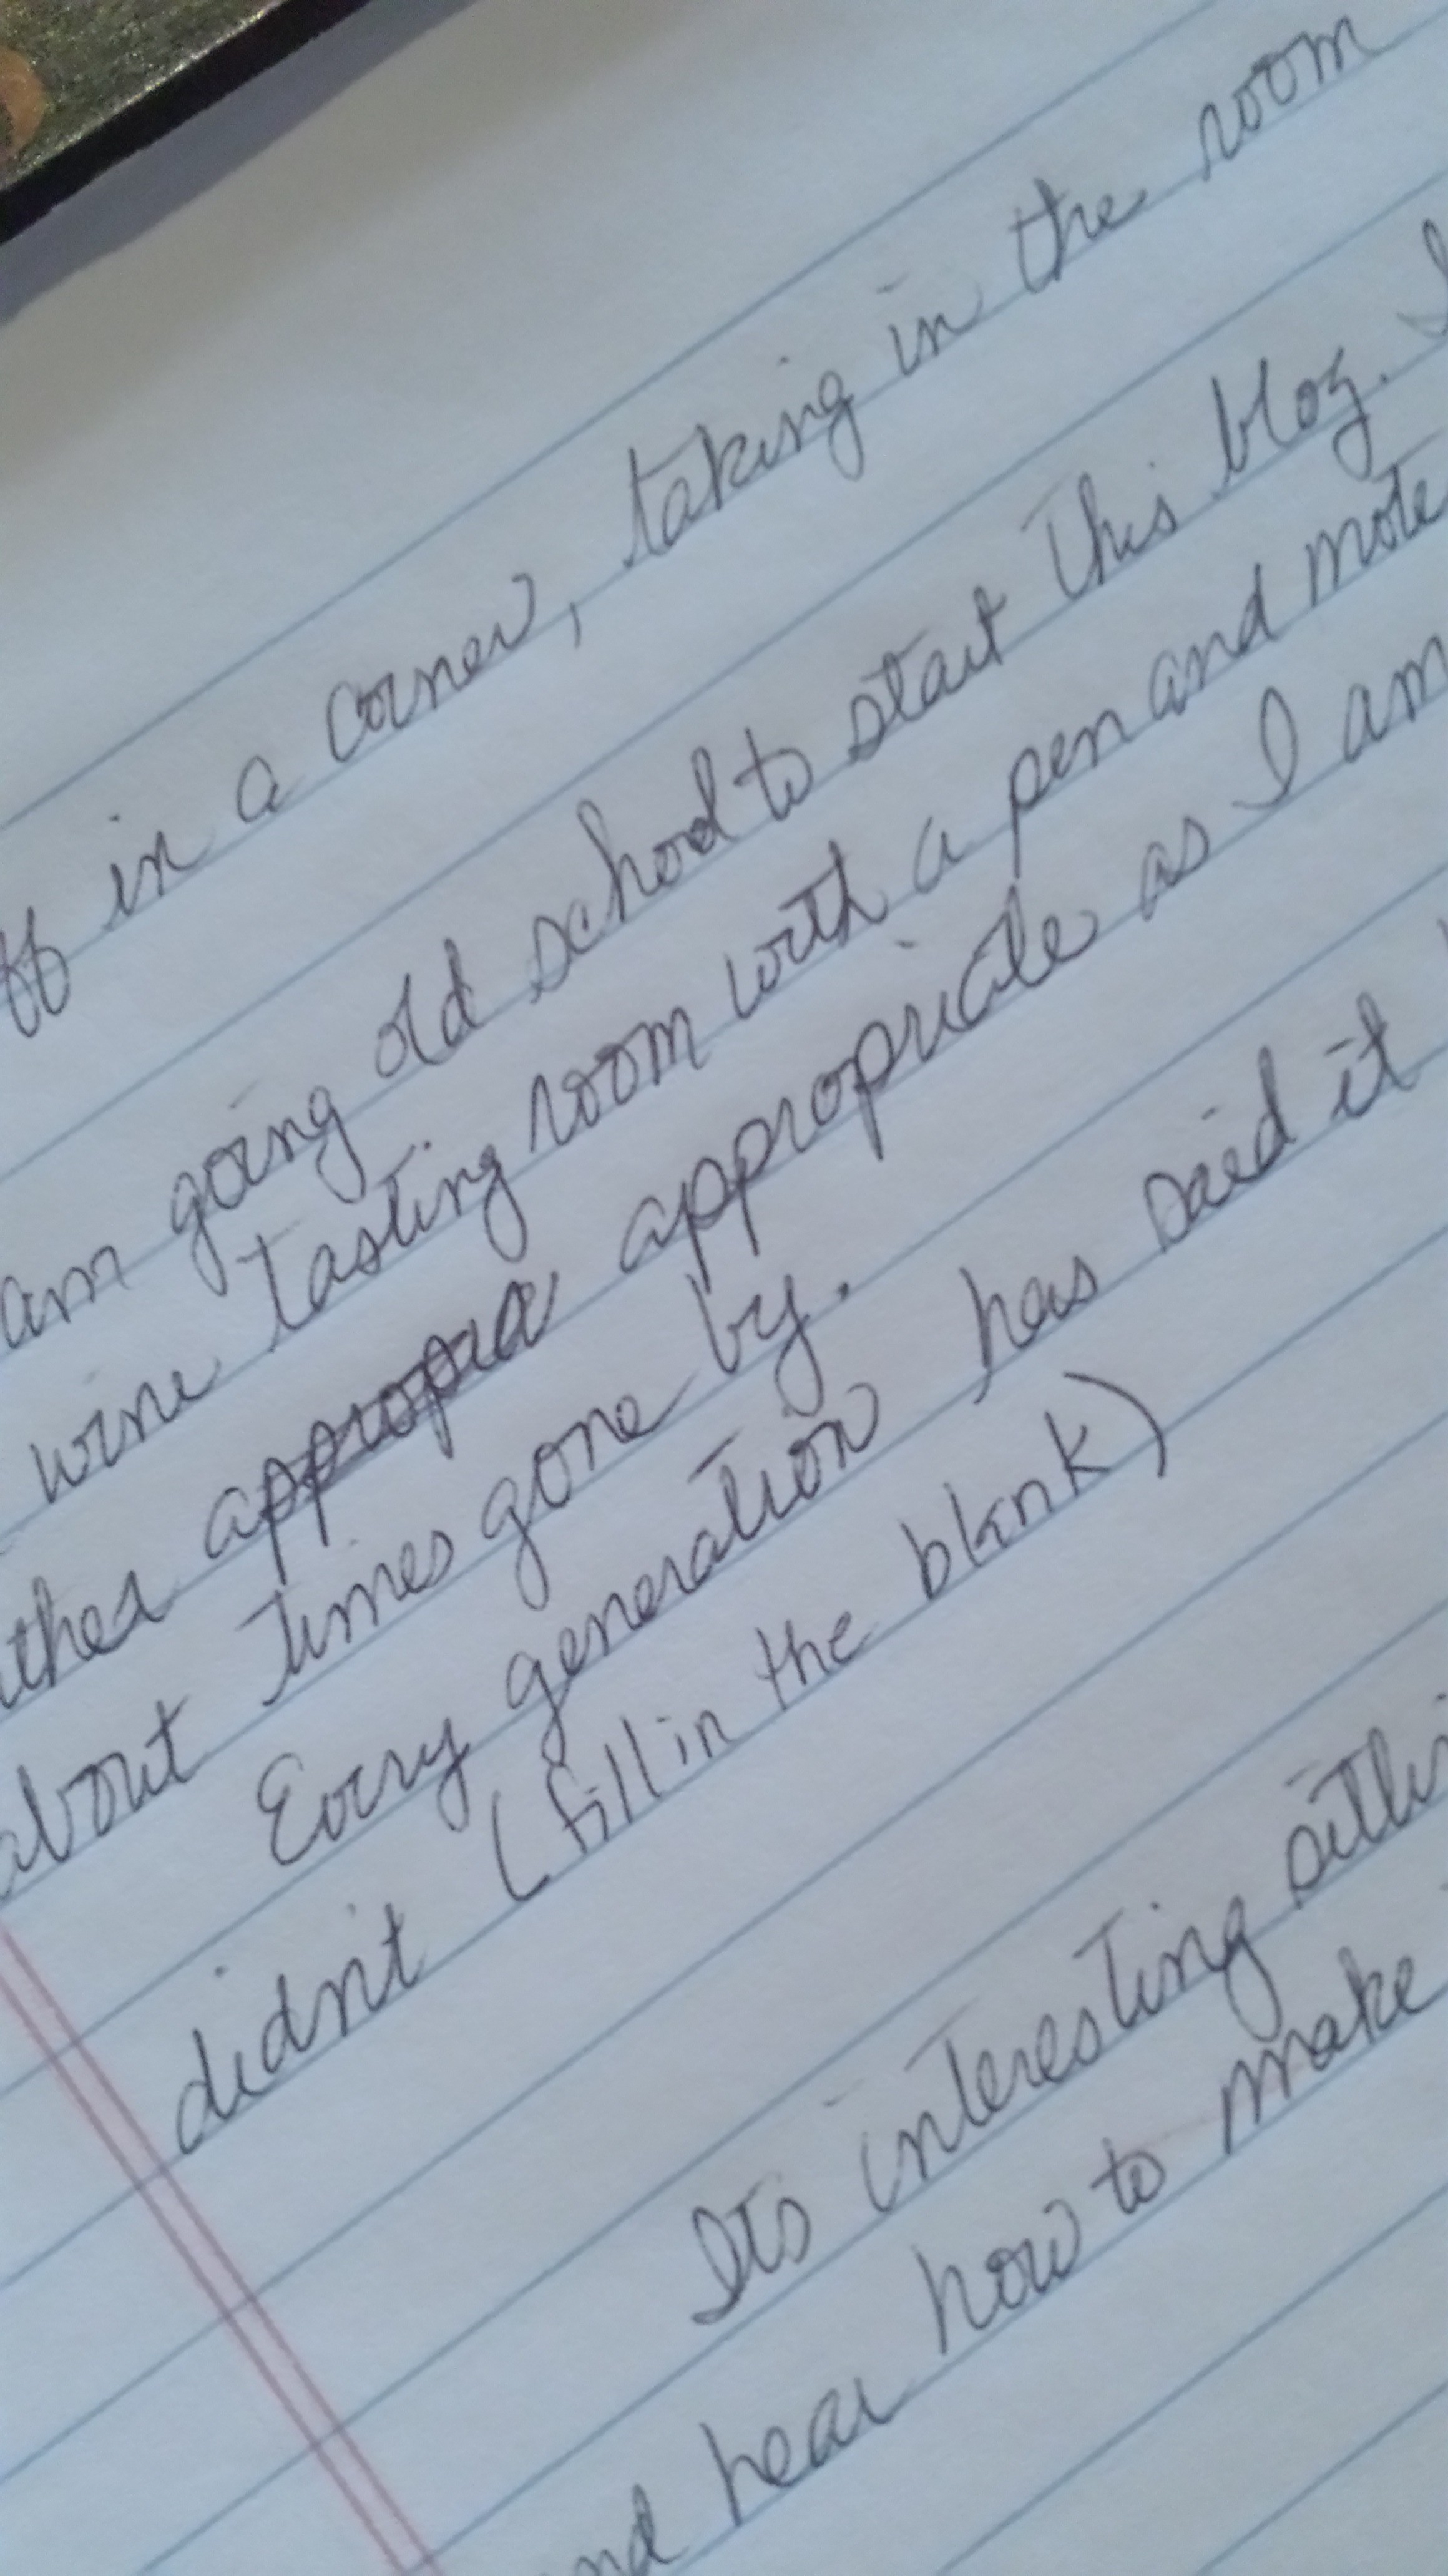 ff in a corner, taking in the room
am going old school to start this blog. I
wine tasting room with a pen and note
ther appropria appropriate as I am
about times gone by.
Every generation has said it
didnt (fill in the blank)
Its interesting sitti
nd hear how to make